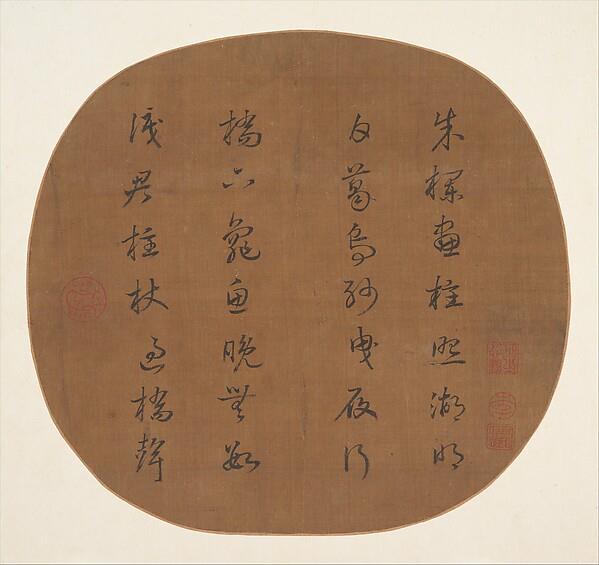 朱欄畫柱照湖明
白葛烏紗曳履行
橋下龜魚晚無數
識君拄杖過橋聲